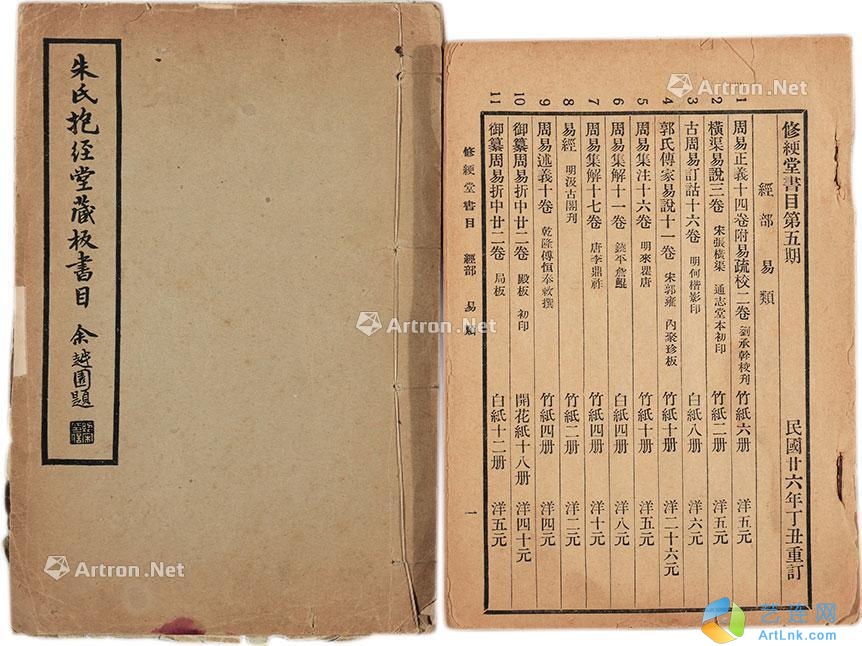 朱氏抱經堂藏板書目
余越園題
修綆堂書目第五期
民國廿六年丁丑重訂
經部 易類
1 周易正義十四卷附易疏校二卷 劉承幹校刊 竹紙六册 洋五元
2 橫渠易說三卷 宋張橫渠 通志堂本初印 竹紙二册 洋五元
3 古周易訂詁十六卷 明何楷影印 白紙八册 洋六元
4 郭氏傳家易說十一卷 宋郭雍 內聚珍板 竹紙十册 洋二十六元
5 周易集注十六卷 明來瞿唐 竹紙十册 洋五元
6 周易集解十一卷 饒平詹鯤 白紙四册 洋八元
7 周易集解十七卷 唐李鼎祚 竹紙四册 洋十元
8 易經 明汲古閣刊 竹紙二册 洋二元
9 周易述義十卷 乾隆傅恒奉敕撰 竹紙四册 洋四元
10 御纂周易折中廿二卷 殿板 初印 開花紙十八册 洋四十元
11 御纂周易折中廿二卷 局板 白紙十二册 洋五元
修綆堂書目 經部 易類 一
Artron.Net
Artron.Net
Artron.Net
Artron.Net
艺连网
ArtLnk.com